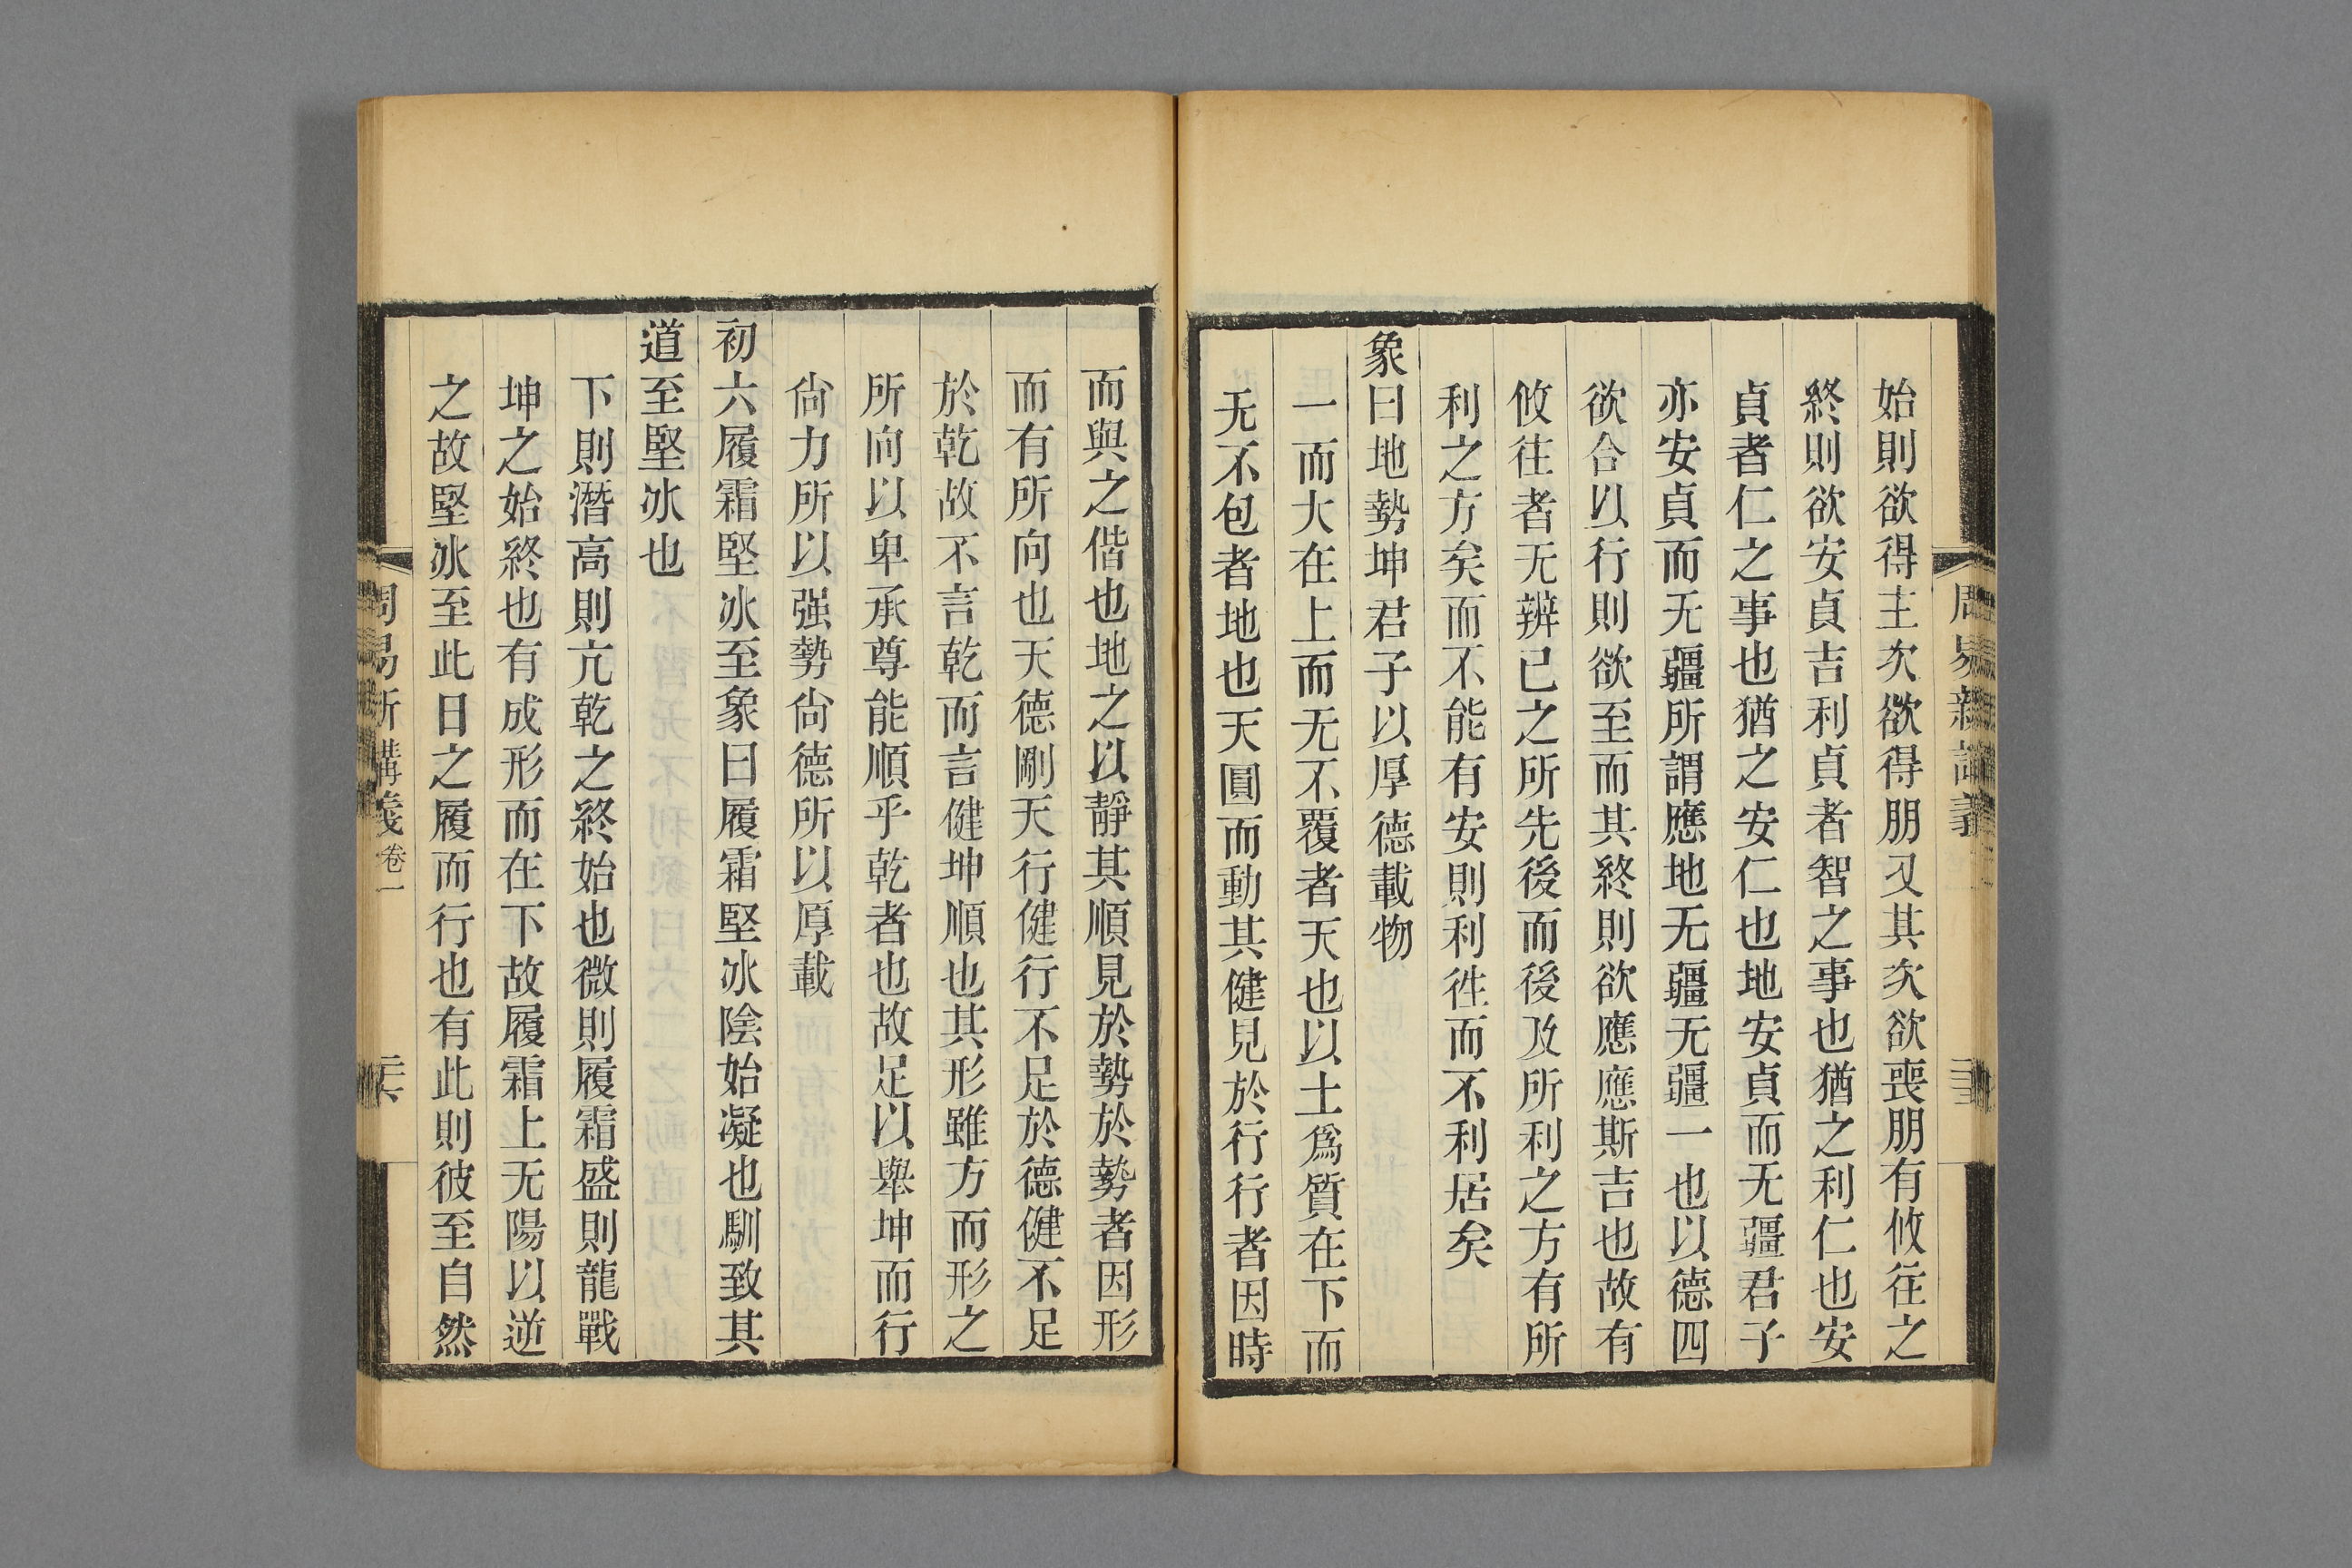 始則欲得主次欲得朋又其次欲喪朋有攸往之
終則欲安貞吉利貞者智之事也猶之利仁也安
貞者仁之事也猶之安仁也地安貞而无疆君子
亦安貞而无疆所謂應地无疆无疆一也以德四
欲合以行則欲至而其終則欲應應斯吉也故有
攸往者无辨已之所先後而後及所利之方有所
利之方矣而不能有安則利徃而不利居矣
象曰地勢坤君子以厚德載物
一而大在上而无不覆者天也以土爲質在下而
无不包者地也天圓而動其健見於行行者因時
而與之偕也地之以靜其順見於勢於勢者因形
而有所向也天德剛天行健行不足於德健不足
於乾故不言乾而言健坤順也其形雖方而形之
所向以卑承尊能順乎乾者也故足以舉坤而行
尙力所以强勢尙德所以厚載
初六履霜堅冰至象曰履霜堅冰陰始凝也馴致其
道至堅冰也
下則潛高則亢乾之終始也微則履霜盛則龍戰
坤之始終也有成形而在下故履霜上无陽以逆
之故堅冰至此日之履而行也有此則彼至自然
周易新講義 卷一